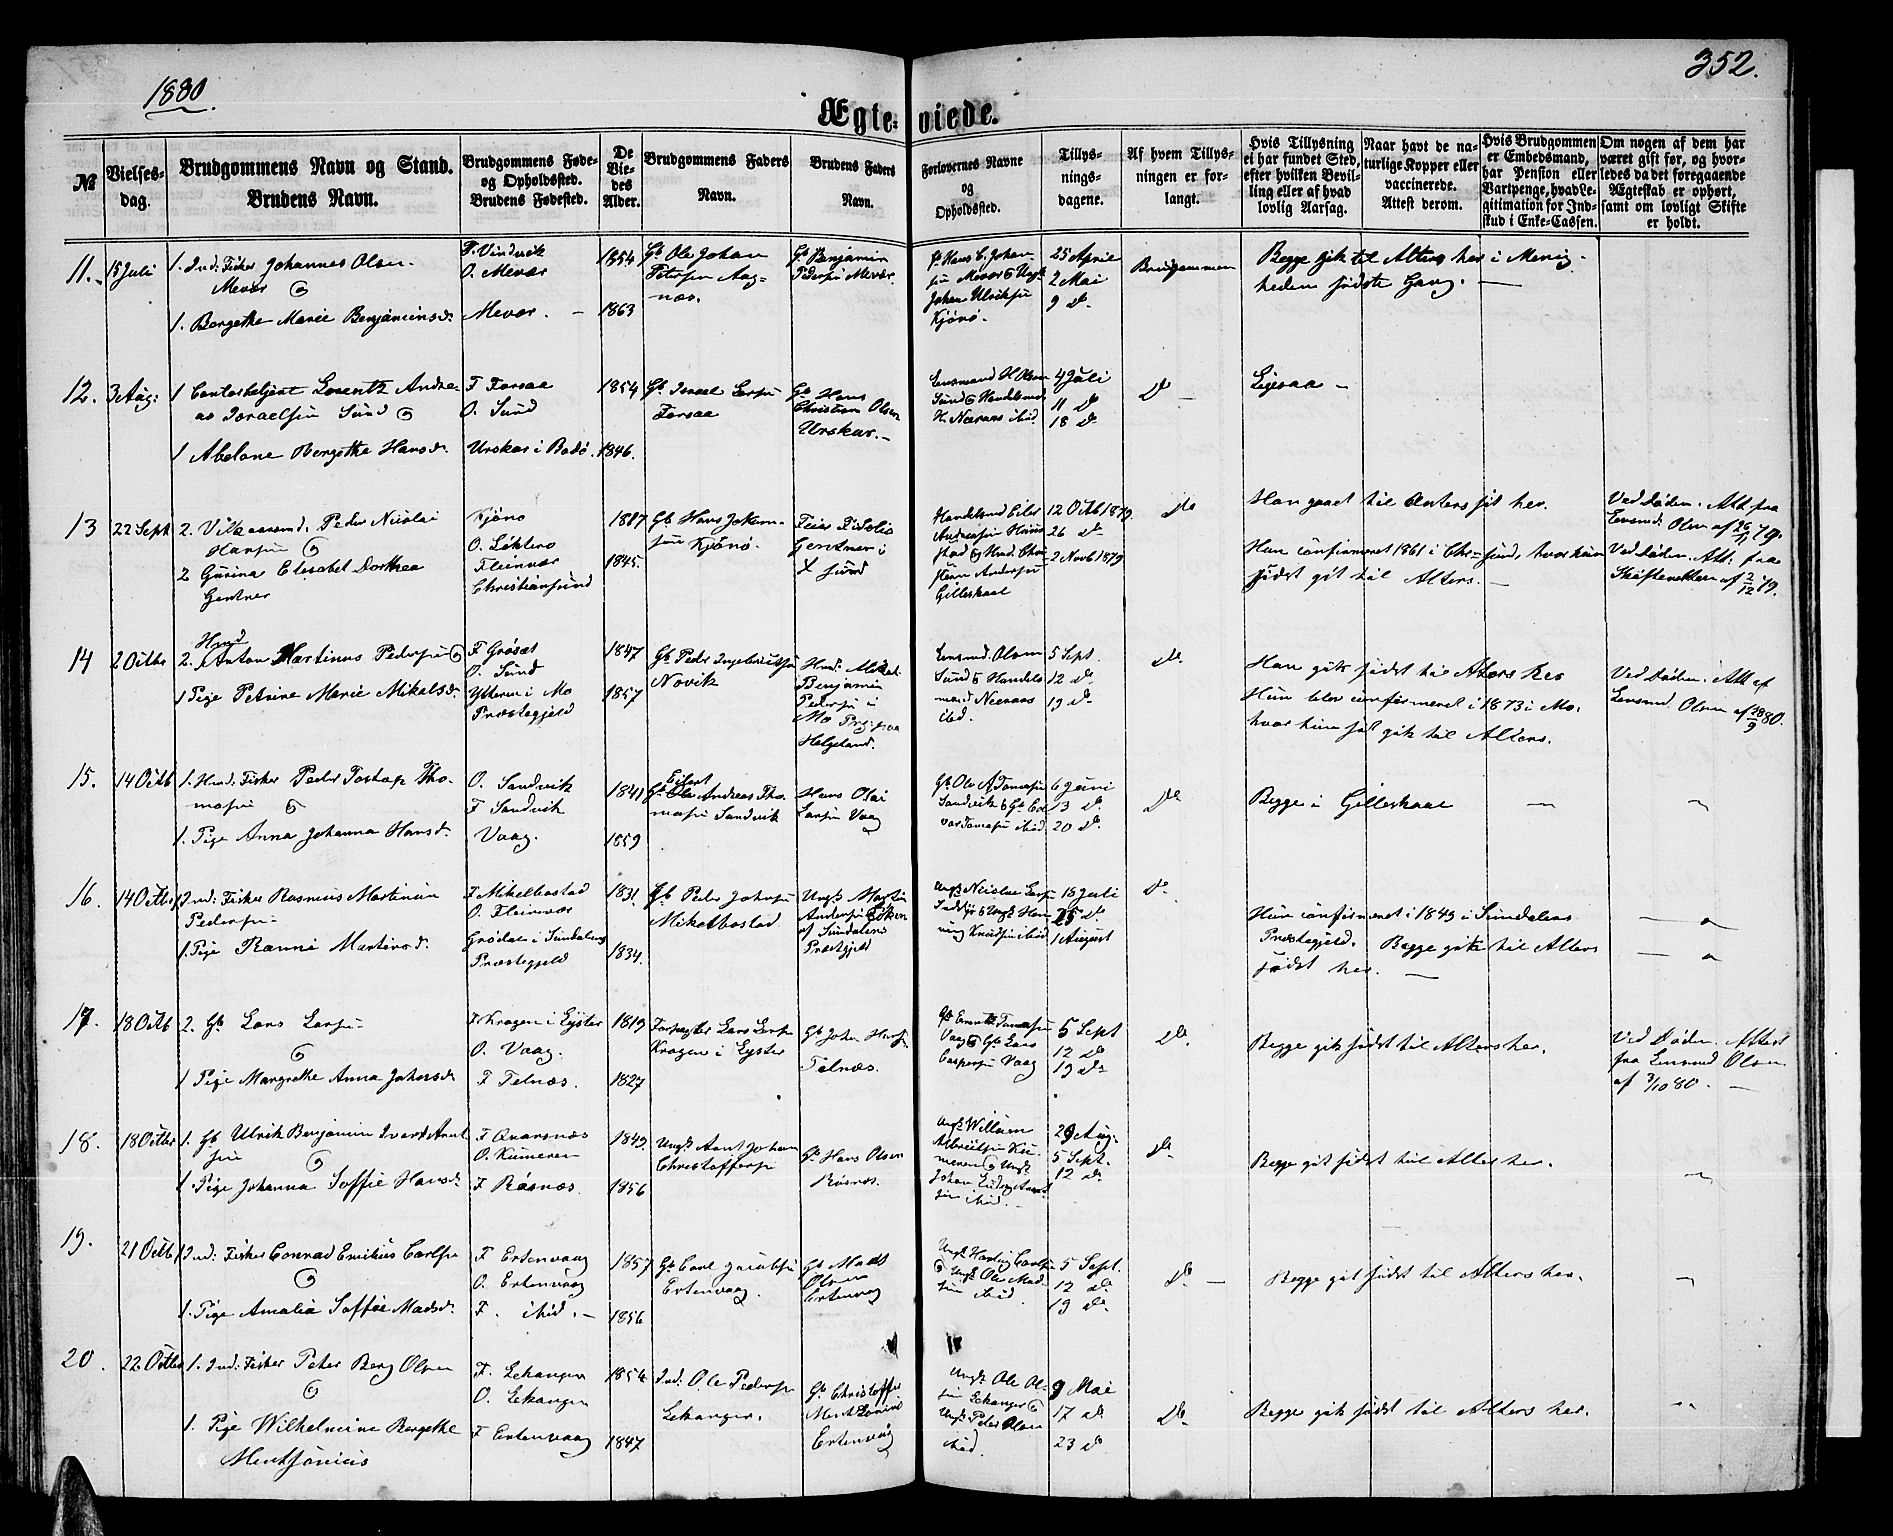 1880.
352.
Ægteviede.
№
Vielses-
dag.
Brudgommens Navn og Stand.
Brudens Navn.
Brudgommens Føde-
og Opholdssted.
Brudens Fødested.
De
Vie-
des
Alder.
Brudgommens Faders
Navn.
Brudens Faders
Navn.
Forlovernes Navne
og
Opholdssted.
Tillys-
nings-
dagene.
Af hvem Tillys-
ningen er for-
langt.
Hvis Tillysning
ei har fundet Sted,
efter hvilken Bevil-
ling eller af hvad
lovlig Aarsag.
Naar havt de na-
turlige Kopper eller
vaccinerede.
Attest derom.
Hvis Brudgommen
er Embedsmand,
har Pension eller
Vartpenge, hvad Le-
gitimation for Ind-
skud i Enke-Cassen.
Om nogen af dem har
været gift før, og hvor-
ledes da det foregaaende
Ægteskab er ophørt,
samt om lovligt Skifte
er holdt.
11. 15 Juli
1. Ind: Fisker Johannes Olsen
Mevær
1. Bergethe Marie Benjaminsd.
F. Vindvik
O. Mevær
Mevær.
1854
1863
Gb Ole Johan
Petersen Aag-
næs.
Gb Benjamin
Pedersen Mevær.
Gb Hans C. Johan
sen Mevær & Ungk.
Johan Ulriksen
Kjønø.
25 April
2 Mai
9 d.
Brudgommen
Begge gik til Alters her i Menig-
heden første Gang.
12. 3 Aug:
1 Contorbetjent Lorentz Andre-
as Israelsen Sund
1 Abelone Bergethe Hansd.
F Forsaa
O. Sund
Urskar i Bodø.
1854
1846.
Gb. Israel Larsen
Forsaa
Gb Hans
Christian Olsen
Urskar.
Lensmand H Olsen
Sund & Handelsmd.
H. Neeraas ibid.
4 Juli
11 d.
18 d.
do
Ligesaa
13 22 Sept
2. Peder Nicolai
Hansen
2 Gurina Elisabet Dorthea
Gentner
Kjønø
O. Løkterø
Fleinvær
Christiansund
1845.
Gb. Hans Johan-
sen Kjønø.
Gentner i
X sund
Gilleskaal
12 Octb 1879
26 d
2 Novb 1879
do
Hun confirmeret 1861 i Chr=sund, hvor hun
først gik til Alters.
Ved Døden. Att. fra
Lensmd. Olsen af 26/11 79.
Ved Døden. Att: fra
Skifteretten af 2/12 79.
14 2 Octbr
2. Anton Martinus Pedersen
1 Pige Petrine Marie Mikelsd.
F Grøsæt
O. Sund
Ytteren i Mo
Præstegjeld
1847
1857
Gb Peder Ingebrictsen
Novik
Hmd. Mikal
Benjamin
Pedersen i
Mo Prgj. paa
Helgeland.
Lensmd. Olsen
Sund & Handels
mand Neeraas
ibid.
5 Sept.
12 d.
19 d.
do
Han gik først til Alters her
Hun blev confirmeret i 1873 i Mo,
hvor hun først gik til Alters.
Ved Døden. Att af
Lensmd. Olsen af 28/9 80.
15. 14 Octb
1. Hmd. Fisker Peder Tostap Tho-
masen
1. Pige Anna Johanna Hansd.
O. Sandvik
F Sandvik
Vaag.
1841
1859
Eilert
Gb Ole Andreas Tho
masen Sandvik
Hans Olai
Larsen Vaag
Gb Ole A Tomasen
Sandvik & Gb Ed
var Tomasen ibid.
6 Juni
13 d.
20 d.
do
Begge i Gilleskaal
16. 14 Octbr
1 Ind: Fisker Rasmus Martinun
Pedersen
1. Pige Ranni Martinsd.
F. Mikelbostad
O. Fleinvær
Grødal i Sundalens
Præstegjeld
1831
1834.
Gb Peder Johnsen
Mikelbostad
Ungk. Martin
Andersen
af Sundalens
Præstgjeld
18 Juli
25 d.
1 August
do
Hun confirmeret i 1849 i Sundalens
Præstegjeld. Begge gik til Alters
først her.
17. 18 Octb
2. Gb Lars Larsen
1 Pige Margrethe Anna Johansd.
F. Kragen i Lyster
O. Vaag.
F Telnæs.
1819
1827
Forpagter Lars Larsen
Kragen i Lyster
Gb Johan Hansen
Telnæs.
Gb Evert Tomasen
Vaag & Gb Lars
Caspersen Vaag
5 Sept
12 d.
19 d.
do
Begge gik først til Alters her.
Ved Døden. Attest
fra Lensmd Olsen
af 7/10 80.
18. 18 Octbr
1. Gb Ulrik Benjamin Ivard Arnt
sen
1. Pige Johanna Soffie Hansd.
F Kvarsnæs
O. Kumeren
F Røsnæs.
1849
1856
Ungk. Arnt Johan
Christoffersen
Gb Hans Olsen
Røsnæs.
Ungk. Willum
Albrictsen Ku-
meren & Ungk.
Johan Ludvig Arnt
sen ibid.
29 Aug.
5 Sept.
12 d.
do
Begge gik først til Alters her.
19. 21 Octb
1 Ind: Fisker Conrad Emilius Carlsen
1. Pige Amalia Soffie Madsd.
F Ertenvaag
O. Ertenvaag
F. ibid.
1857
1856
Gb Carl Jacobsen
Ertenvaag.
Gb Mads
Olsen
Ertenvaag
Ungk. Hartvig Carlsen
& Ungk. Ole Mad
sen ibid.
5 Sept.
12 d.
19 d.
do
Begge gik først til Alters her.
20. 22 Octbr
1. Ind: Fisker Peter Berg Olsen
1. Pige Wilhelmine Bergethe
Mentsonius
F. Lekanger
O. Lekanger
F Ertenvaag
1854
1847
Ind: Ole Pedersen
Lekanger.
Gb Christoffer
Ertenvaag
Ungk. Ole Ol-
sen Lekanger &
Ungk. Peter Olsen
ibid.
9 Mai
17 d.
23 d.
do
Begge gik først til Alters her.